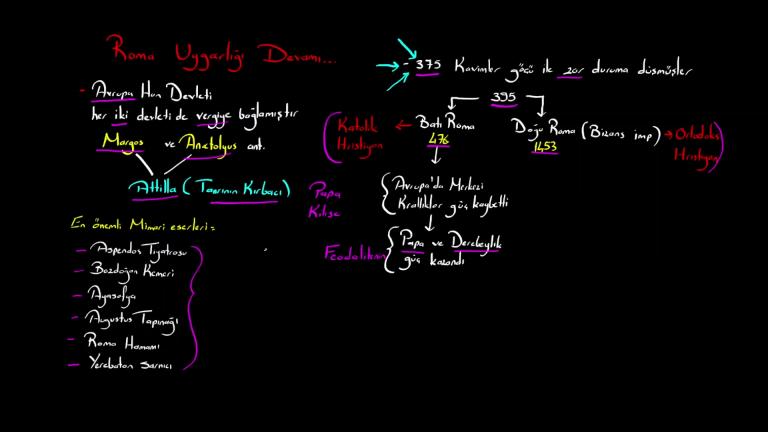 Roma Uygarlığı Devamı...
- Avrupa Hun Devleti
her iki devleti de vergiye bağlamıştır
Margos ve Anatolyus ant.
Attilla (Tanrının Kırbacı)
En önemli Mimari eserleri:
- Aspendos Tiyatrosu
- Bozdoğan Kemeri
- Ayasofya
- Augustus Tapınağı
- Roma Hamamı
- Yerebatan Sarnıcı
- 375 Kavimler göçü ile zor duruma düşmüşler
395
Katolik Hristiyan ← Batı Roma 476
Doğu Roma (Bizans imp) → Ortodoks Hristiyan
1453
Papa
Kilise
Avrupa'da Merkezi
Krallıklar güç kaybetti
Feodalitenin
Papa ve Derebeylik
güç kazandı